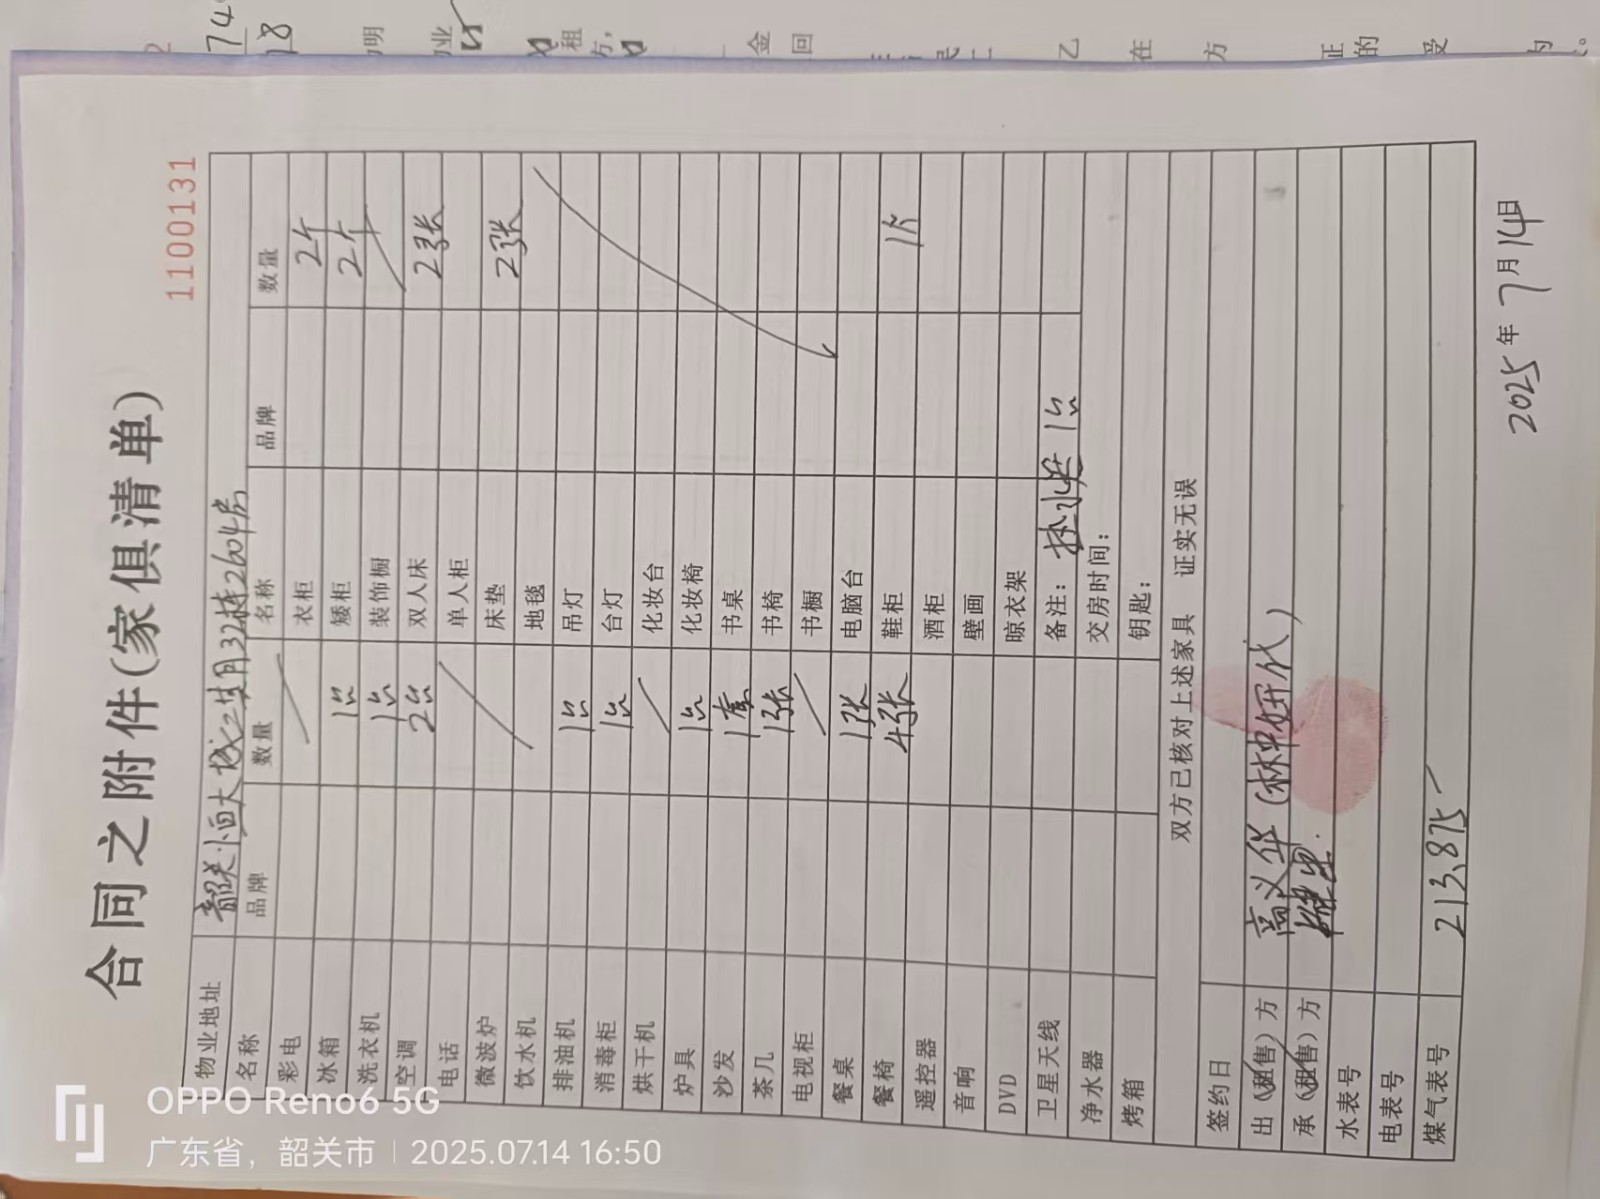 合同之附件(家俱清单)
1100131
物业地址 韶关恒大城二期33栋2604房
名称 品牌 数量 名称 品牌 数量
彩电 衣柜 2个
冰箱 1台 矮柜 2个
洗衣机 1台 装饰橱
空调 2台 双人床 2张
电话 单人柜
微波炉 床垫 2张
饮水机 地毯
排油机 1台 吊灯
消毒柜 1台 台灯
烘干机 化妆台
炉具 1台 化妆椅
沙发 1套 书桌
茶几 1张 书椅
电视柜 书橱
餐桌 1张 电脑台
餐椅 4张 鞋柜 1个
遥控器 酒柜
音响 壁画
DVD 晾衣架
卫星天线 备注: 热水器 1台
净水器 交房时间:
烤箱 钥匙:
双方已核对上述家具 证实无误
签约日
出(租售)方 高义华(林妍代)
承(租售)方
水表号
电表号
煤气表号 213.875
2025年7月14日
OPPO Reno6 5G
广东省, 韶关市 | 2025.07.14 16:50